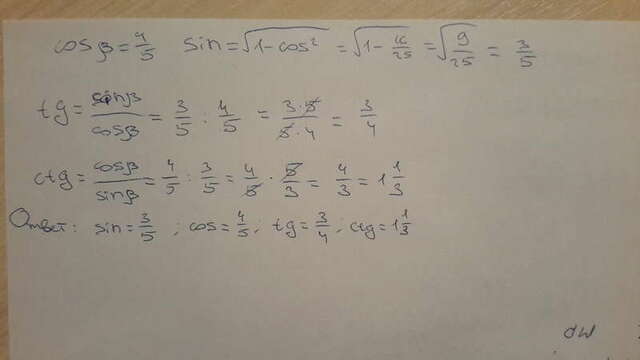 cos β = 4/5 sin = √1 - cos² = √1 - 16/25 = √9/25 = 3/5
tg = sinβ/cosβ = 3/5 : 4/5 = 3·5/5·4 = 3/4
ctg = cosβ/sinβ = 4/5 : 3/5 = 4/5 · 5/3 = 4/3 = 1 1/3
Ответ: sin = 3/5 ; cos = 4/5 ; tg = 3/4 ; ctg = 1 1/3